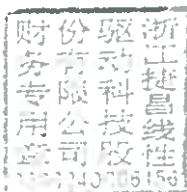 浙江捷昌线性
驱动科技股
份有限公司
财务专用章